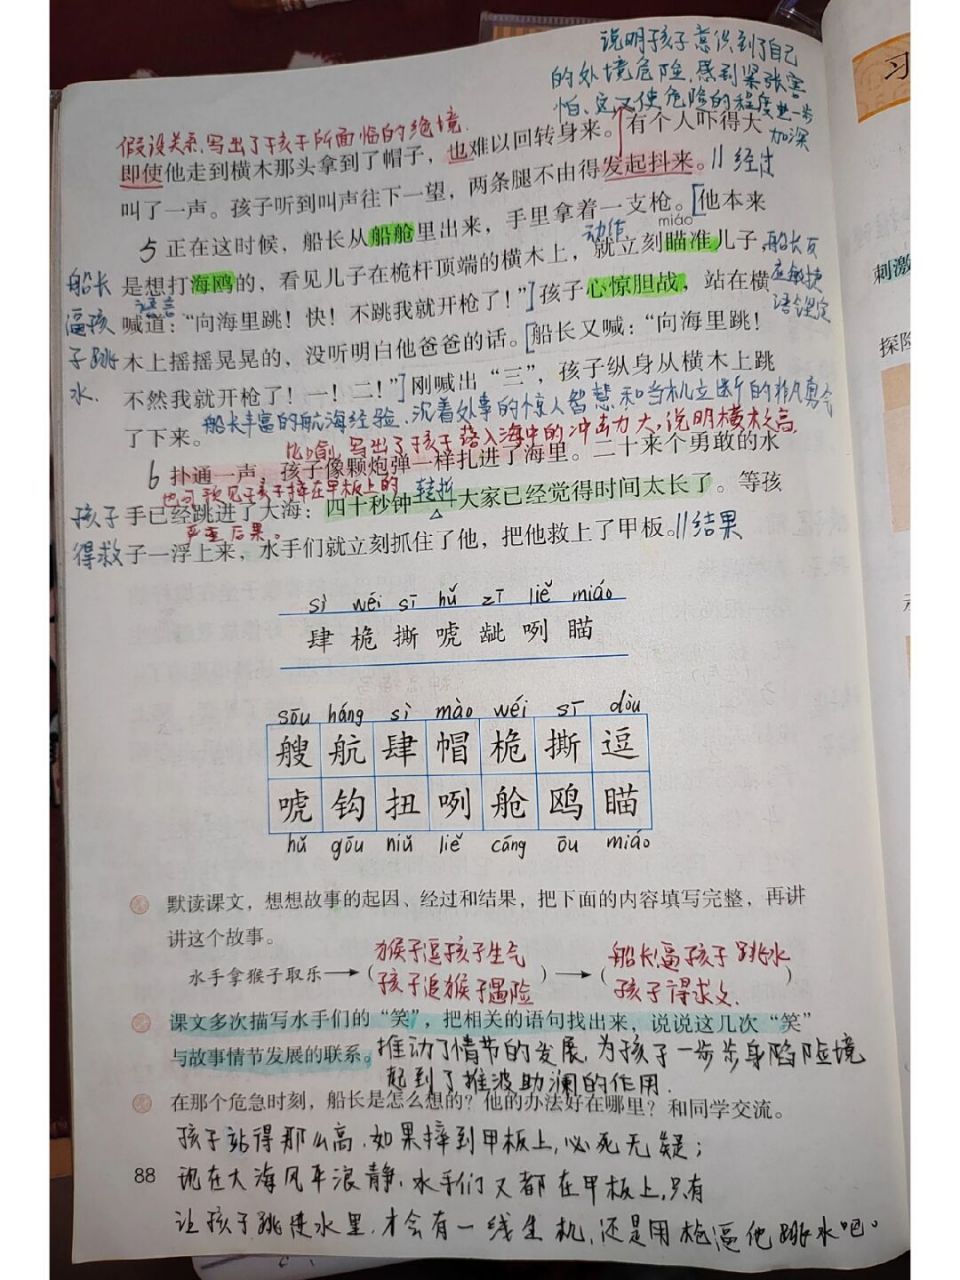 说明孩子意识到了自己
的处境危险，感到紧张害
怕，它又使危险的程度进一步
加深
假设关系，写出了孩子所面临的绝境。
即使他走到横木那头拿到了帽子，也难以回转身来。有个人吓得大
叫了一声。孩子听到叫声往下一望，两条腿不由得发起抖来。//经过
miáo
5 正在这时候，船长从船舱里出来，手里拿着一支枪。[他本来
动作
是想打海鸥的，看见儿子在桅杆顶端的横木上，就立刻瞄准儿子，
语言
喊道：“向海里跳！快！不跳我就开枪了！”]孩子心惊胆战，站在横
木上摇摇晃晃的，没听明白他爸爸的话。[船长又喊：“向海里跳！
不然我就开枪了！一！二！”]刚喊出“三”，孩子纵身从横木上跳
了下来。
船长
逼孩
子跳
水.
船长反
应敏捷
语锃定
船长丰富的航海经验，沉着处事的惊人智慧，和当机立断的非凡勇气
比喻，写出了孩子落入海中的冲击力大，说明横木较高，
6 扑通一声，孩子像颗炮弹一样扎进了海里。二十来个勇敢的水
也可预见孩子摔在甲板上的
严重后果。
转折
手已经跳进了大海：四十秒钟——大家已经觉得时间太长了。等孩
子一浮上来，水手们就立刻抓住了他，把他救上了甲板。//结果
孩子
得救
sì wéi sī hǔ zī liě miáo
肆 桅 撕 唬 龇 咧 瞄
sōu háng sì mào wéi sī dòu
艘 航 肆 帽 桅 撕 逗
唬 钩 扭 咧 舱 鸥 瞄
hǔ gōu niǔ liě cāng ōu miáo
默读课文，想想故事的起因、经过和结果，把下面的内容填写完整，再讲
讲这个故事。
水手拿猴子取乐→（猴子逗孩子生气
孩子追猴子遇险）→（船长逼孩子跳水
孩子得求文.）
课文多次描写水手们的“笑”，把相关的语句找出来，说说这几次“笑”
与故事情节发展的联系。推动了情节的发展，为孩子一步步身陷险境
起到了推波助澜的作用.
在那个危急时刻，船长是怎么想的？他的办法好在哪里？和同学交流。
孩子站得那么高，如果摔到甲板上，必死无疑；
现在大海风平浪静，水手们又都在甲板上，只有
让孩子跳进水里，才会有一线生机，还是用枪逼他跳水吧。
88
习
刺激
探险